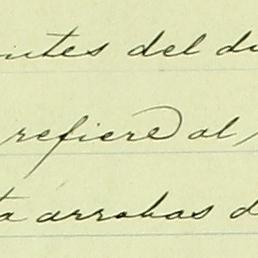 ntes del d
refiere al
ta arrobas d